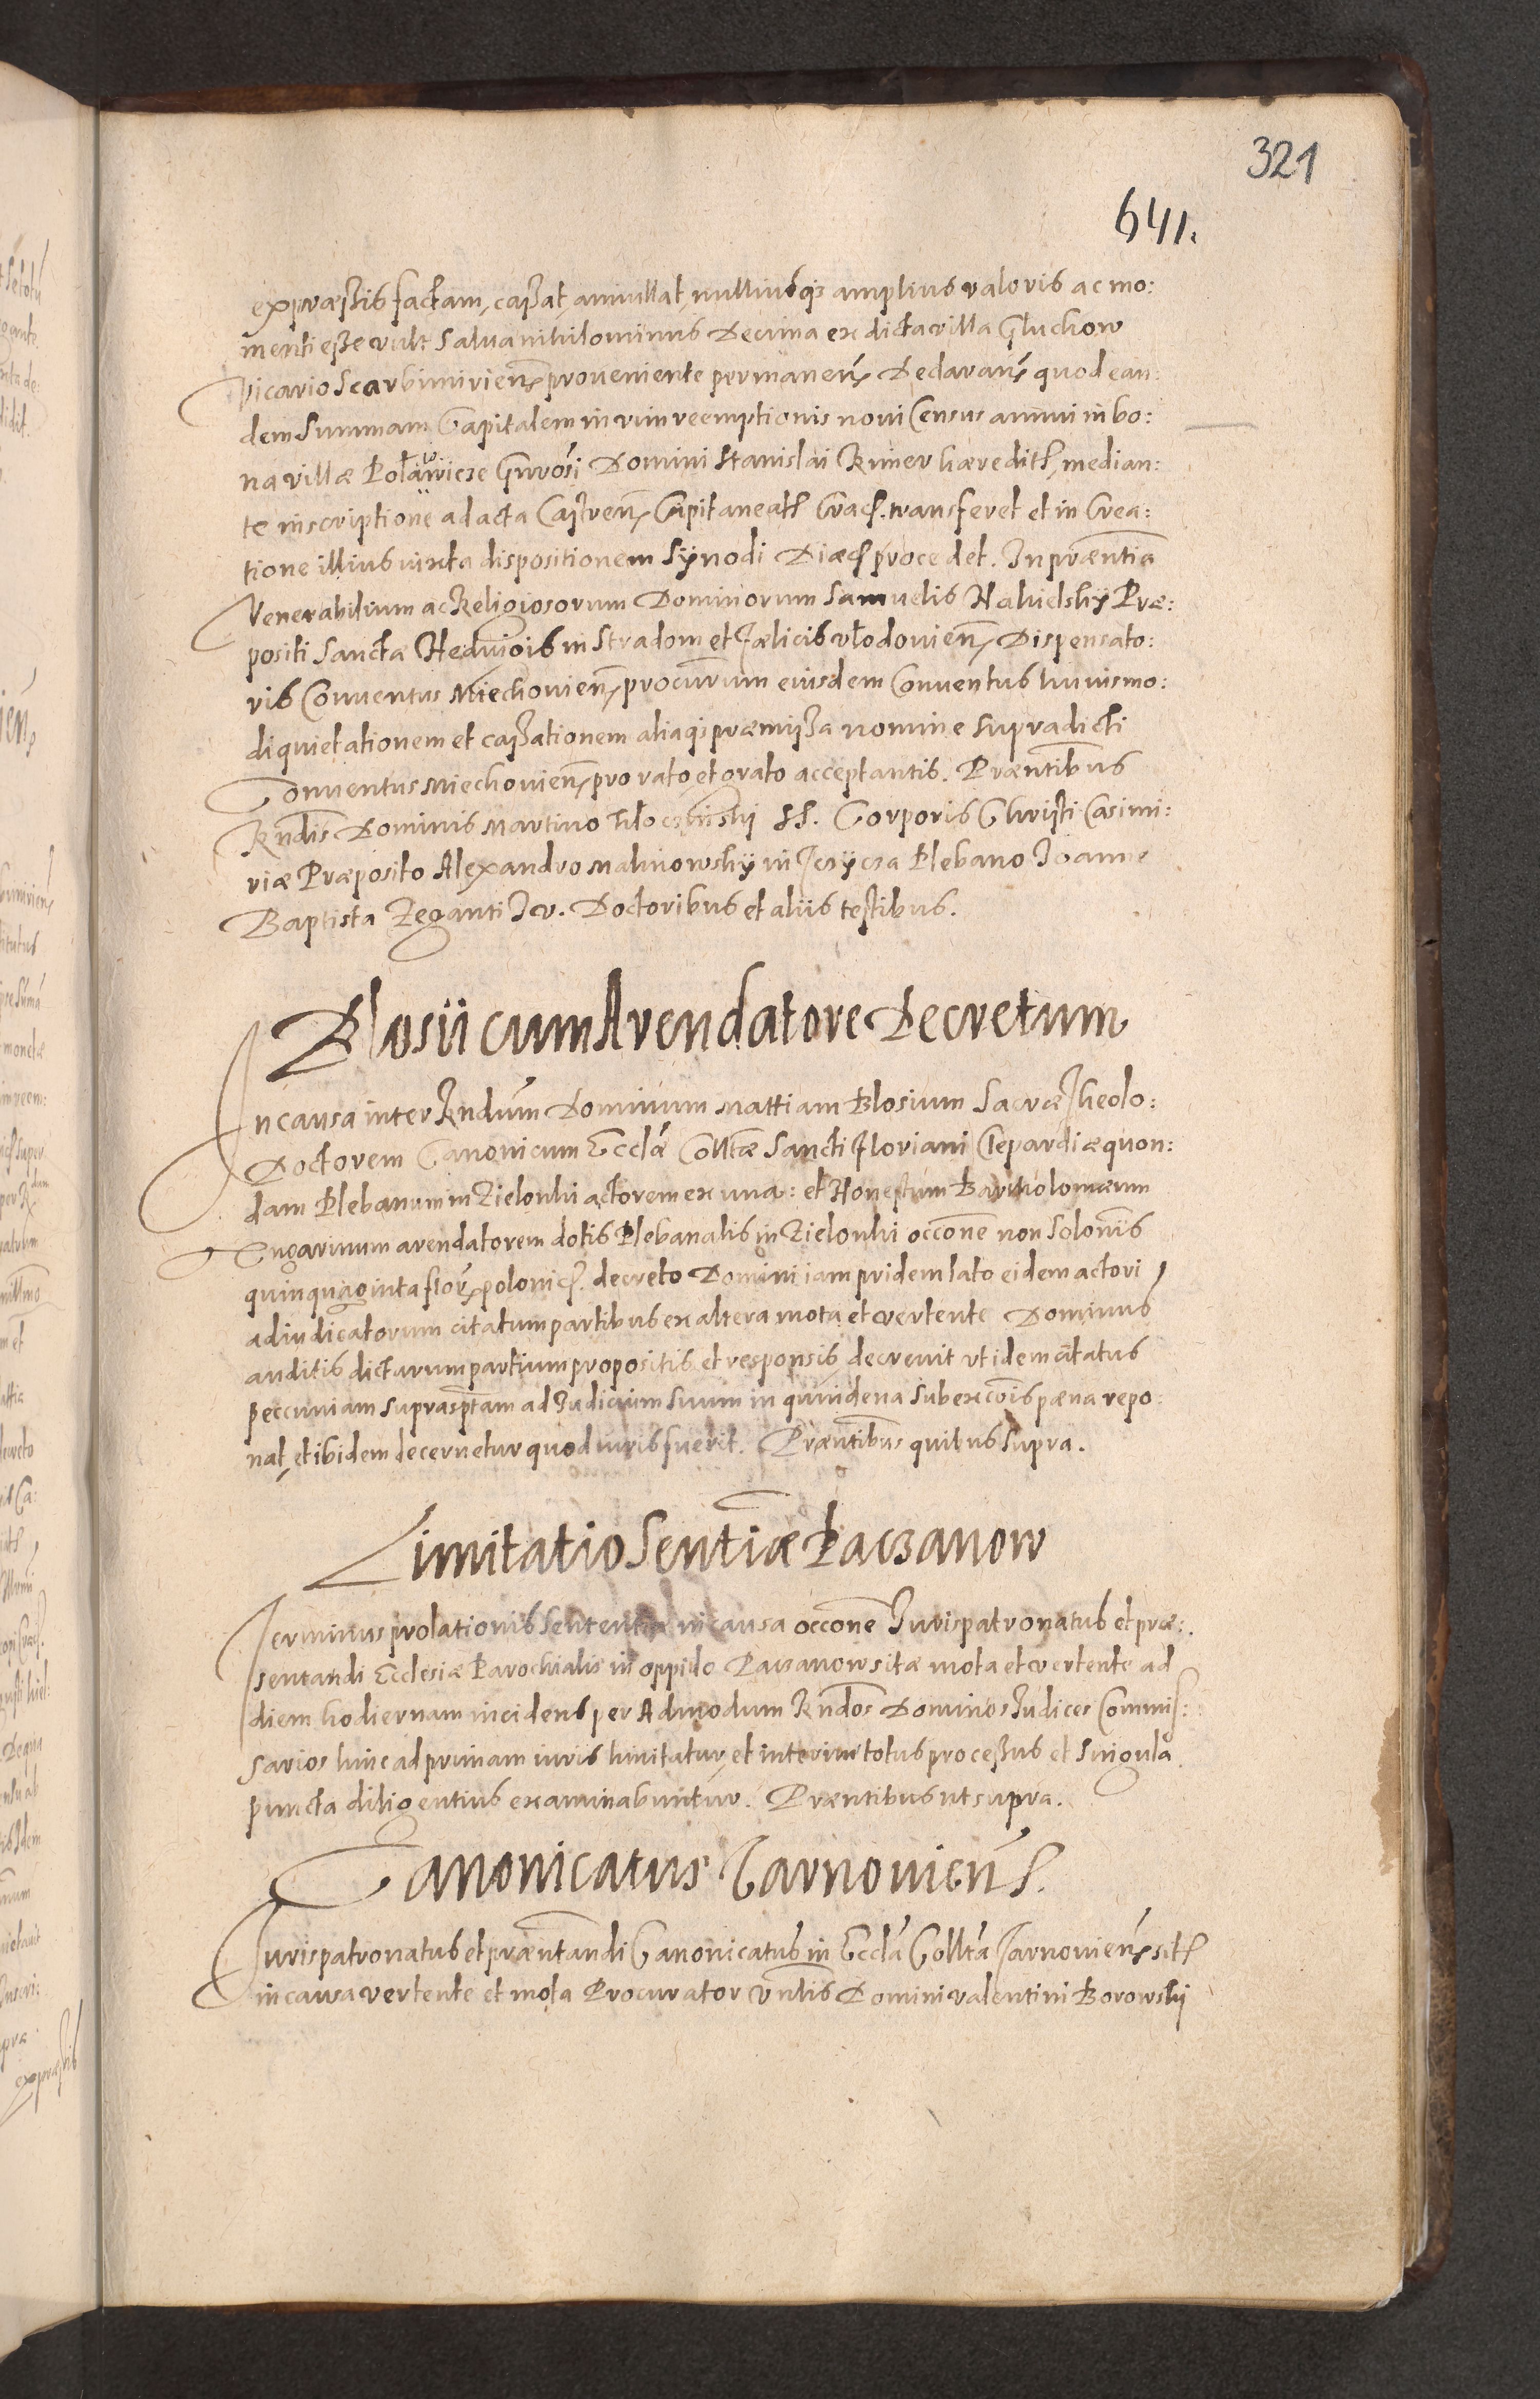 321
641.
expræssis factam, cassat, annullat, nulliusq3 amplius valoris ac mo:
menti esse vult Salua nihilominus Decima ex dicta villa Głuchow
Vicario Scarbimirien̄ proueniente permanen̄ Declaran̄ quod ean:
dem Summam Capitalem in vim reemptionis noui Census annui in bo:
na villæ Gn̄rosi Domini Stanislai Kmer hæredit, median:
te inscriptione ad acta Castren̄ Capitaneat Crac. transferet et in Crea:
tione illius iuxta dispositionem Synodi Diæc procedet. In præn̄tia
Venerabilium ac Religiosorum Dominorum Samuelis Præ:
positi Sanctæ Heduigis in Stradom et Fælicis Włodouien̄ Dispensato:
ris Conuentus Miechouien̄ procur̄um eiusdem Conuentus huiusmo:
di quietationem et cassationem aliaq3 præmissa nomine supradicti
Conuentus Miechouien̄ pro rato et grato acceptantis. Præn̄tibus
Rn̄dis Dominis Martino SS. Corporis Christi Casimi:
riæ Præposito Alexandro Malinowsky in Plebano Joanne
Baptista Zeganti J.V. Doctoribus et aliis testibus.
Blosii cum Arendatore Decretum
In causa inter Rn̄dum Dominum Mattiam Blosium Sacræ Theolo:
Doctorem Canonicum Eccl̄æ Coll̄tæ Sancti Floriani Clepardiæ quon:
dam Plebanum in Zielonki actorem ex una: et Honestum Bartholomæum
Ungarinum arendatorem dotis Plebanalis in Zielonki occ̄one non solōnis
quinquaginta flor̄ polonic. decreto Domini iam pridem lato eidem actori
adiudicatorum citatum partibus ex altera mota et vertente Dominus
auditis dictarum partium propositis et responsis decreuit ut idem citatus
peccuniam suprasp̄tam ad Judicium suum in quindena sub exc̄ois pæna repo:
nat, et ibidem decernetur quod iuris fuerit. Præn̄tibus quibus supra.
Limitatio Sentn̄iæ Paczanow
Terminus prolationis Sententiæ in causa occ̄one Jurispatronatus et præ:
sentandi Ecclesiæ Parochialis in oppido Paczanow sitæ mota et vertente ad
diem hodiernam incidens per Admodum Rn̄dos Dominos Judices Commis:
sarios hinc ad primam iuris limitatur, et interim totus processus et singula
puncta diligentius examinabuntur. Præn̄tibus ut supra.
Canonicatus Tarnouien̄.
Jurispatronatus et præn̄tandi Canonicatus in Eccl̄a Coll̄ta Tarnouien̄ sit
in causa vertente et mota Procurator Vn̄lis Domini Valentini Borowski